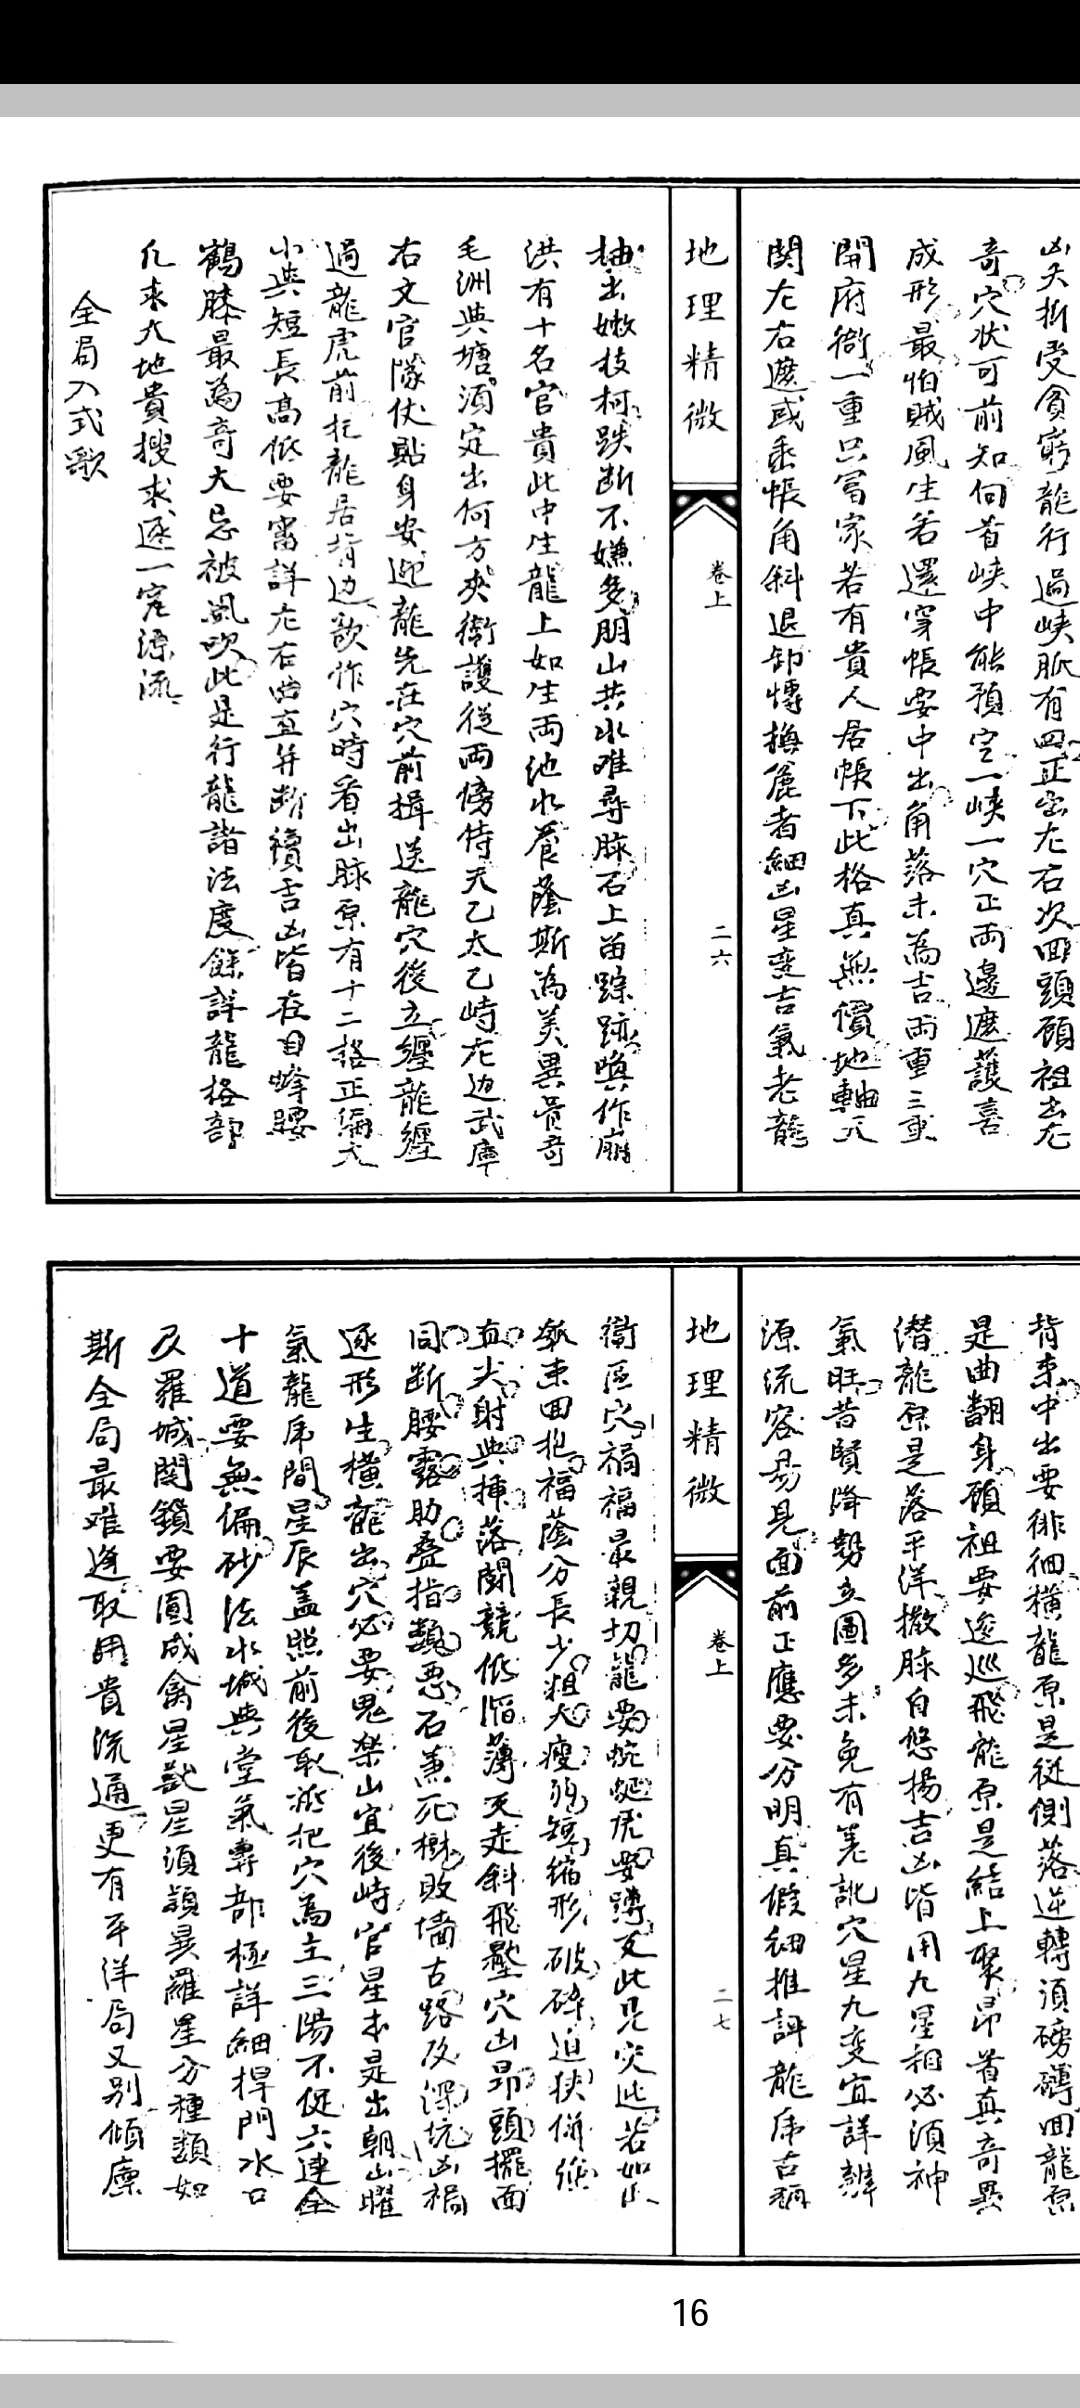 凶夭折受貧窮龍行過峽脈有四正出左右次回頭顧祖出左
奇穴状可前知何首峽中能預定一峽一穴正兩邊遮護喜
成形最怕賊風生若還穿帳要中出角落未為吉兩重三重
開府衙一重只富家若有貴人居帳下此格真無價地軸天
関左右遮或垂帳角斜退卸愽換麄者細凶星變吉氣老龍
地理精微
卷上
二六
抽出嫩枝柯跌断不嫌多朋山共水难尋脉石上留踪跡喚作崩
洪有十名官貴此中生龍上如生兩池水養蔭斯為美異骨奇
毛洲與塘須定出何方夾衛護從兩傍侍天乙太乙峙左边武庫
右文官隊仗貼身安迎龍先在穴前揖送龍穴後立纏龍纏
過龍虎前托龍居背边欲作穴時看出脉原有十二格正偏大
小與短長高低要審詳左右曲直并断續吉凶皆在目蜂腰
鶴膝最為奇大忌被風吹此是行龍諸法度餘詳龍格部
凡求大地貴搜求逐一究源流
全局入式歌
背来中出要徘徊橫龍原是從側落逆轉須磅礡回龍原
是曲翻身顧祖要逡巡飛龍原是結上聚昂首真奇異
潜龍原是落平洋撒脉自悠揚吉凶皆用九星相必須神
氣旺昔賢降勢立圖多未免有差訛穴星九变宜詳辨
源流容易見面前正應要分明真假細推評龍虎古稱
地理精微
卷上
二七
衛區穴禍福最親切龍要蜿蜒虎要蹲 此兄灾 若如出
來回抱福蔭分長少粗大瘦弱短縮形破碎迫狭併
直尖射與揷落鬪競低陷薄 走斜飛壓穴凶昂頭擺面
同断腰露肋叠指類悪石兼死樹敗墻古路及深坑凶禍
逐形生橫龍出穴必要鬼樂山宜後峙官星本是出朝山曜
氣龍虎間星辰盖照前後取 把穴為主三陽不促六連全
十道要無偏砂法水城與堂氣專部極詳細捍門水口
及羅城関鎖要圓成禽星獸星須類異羅星分種類如
斯全局最难逢取用貴流通更有平洋局又別傾
16